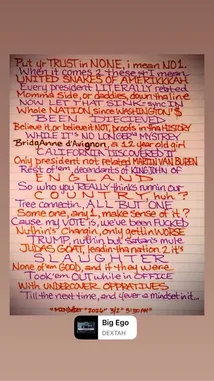 Put yr TRUST in NONE, i mean NO1.
When it comes 2 these 4 I mean
UNITED SNAKES OF AMERIKKKAH
Every president LITERALLY related
Momma Side, or daddies, down tha line
NOW LET THAT SINK: sync IN
Whole NATION, since WASHINGTON'$
BEEN DIECIEVED
Believe it, or believe it NOT, proofs in tha HISTORY
WHILE IT'S NO LONGER MYSTERY
BridgAnne d'Avignon, a 12 year old girl
CALIFORNIA DISCOVERED IT
Only president not related MARTIN VAN BUREN
Rest of 'em, decendants of KING JOHN of
ENGLAND
So who u REALLY thinks runnin our
COUNTRY, huh?
Tree connection, ALL but ONE
Some one, any 1, make sense of it?
Cause my VOTE's, we've been FUCKED
Nuthin's Changin, only gettin WORSE
TRUMP, nuthin but satan's mute
JUDAS GOAT, leadin tha nation 2 it's
SLAUGHTER
None of 'em GOOD, and if they were
Took 'em OUT while in OFFICE
WITH UNDERCOVER OPPRATIVES
Till the next time, and 4ever is mindset in it...
"2026" 3/2
Big Ego
DEXTAH